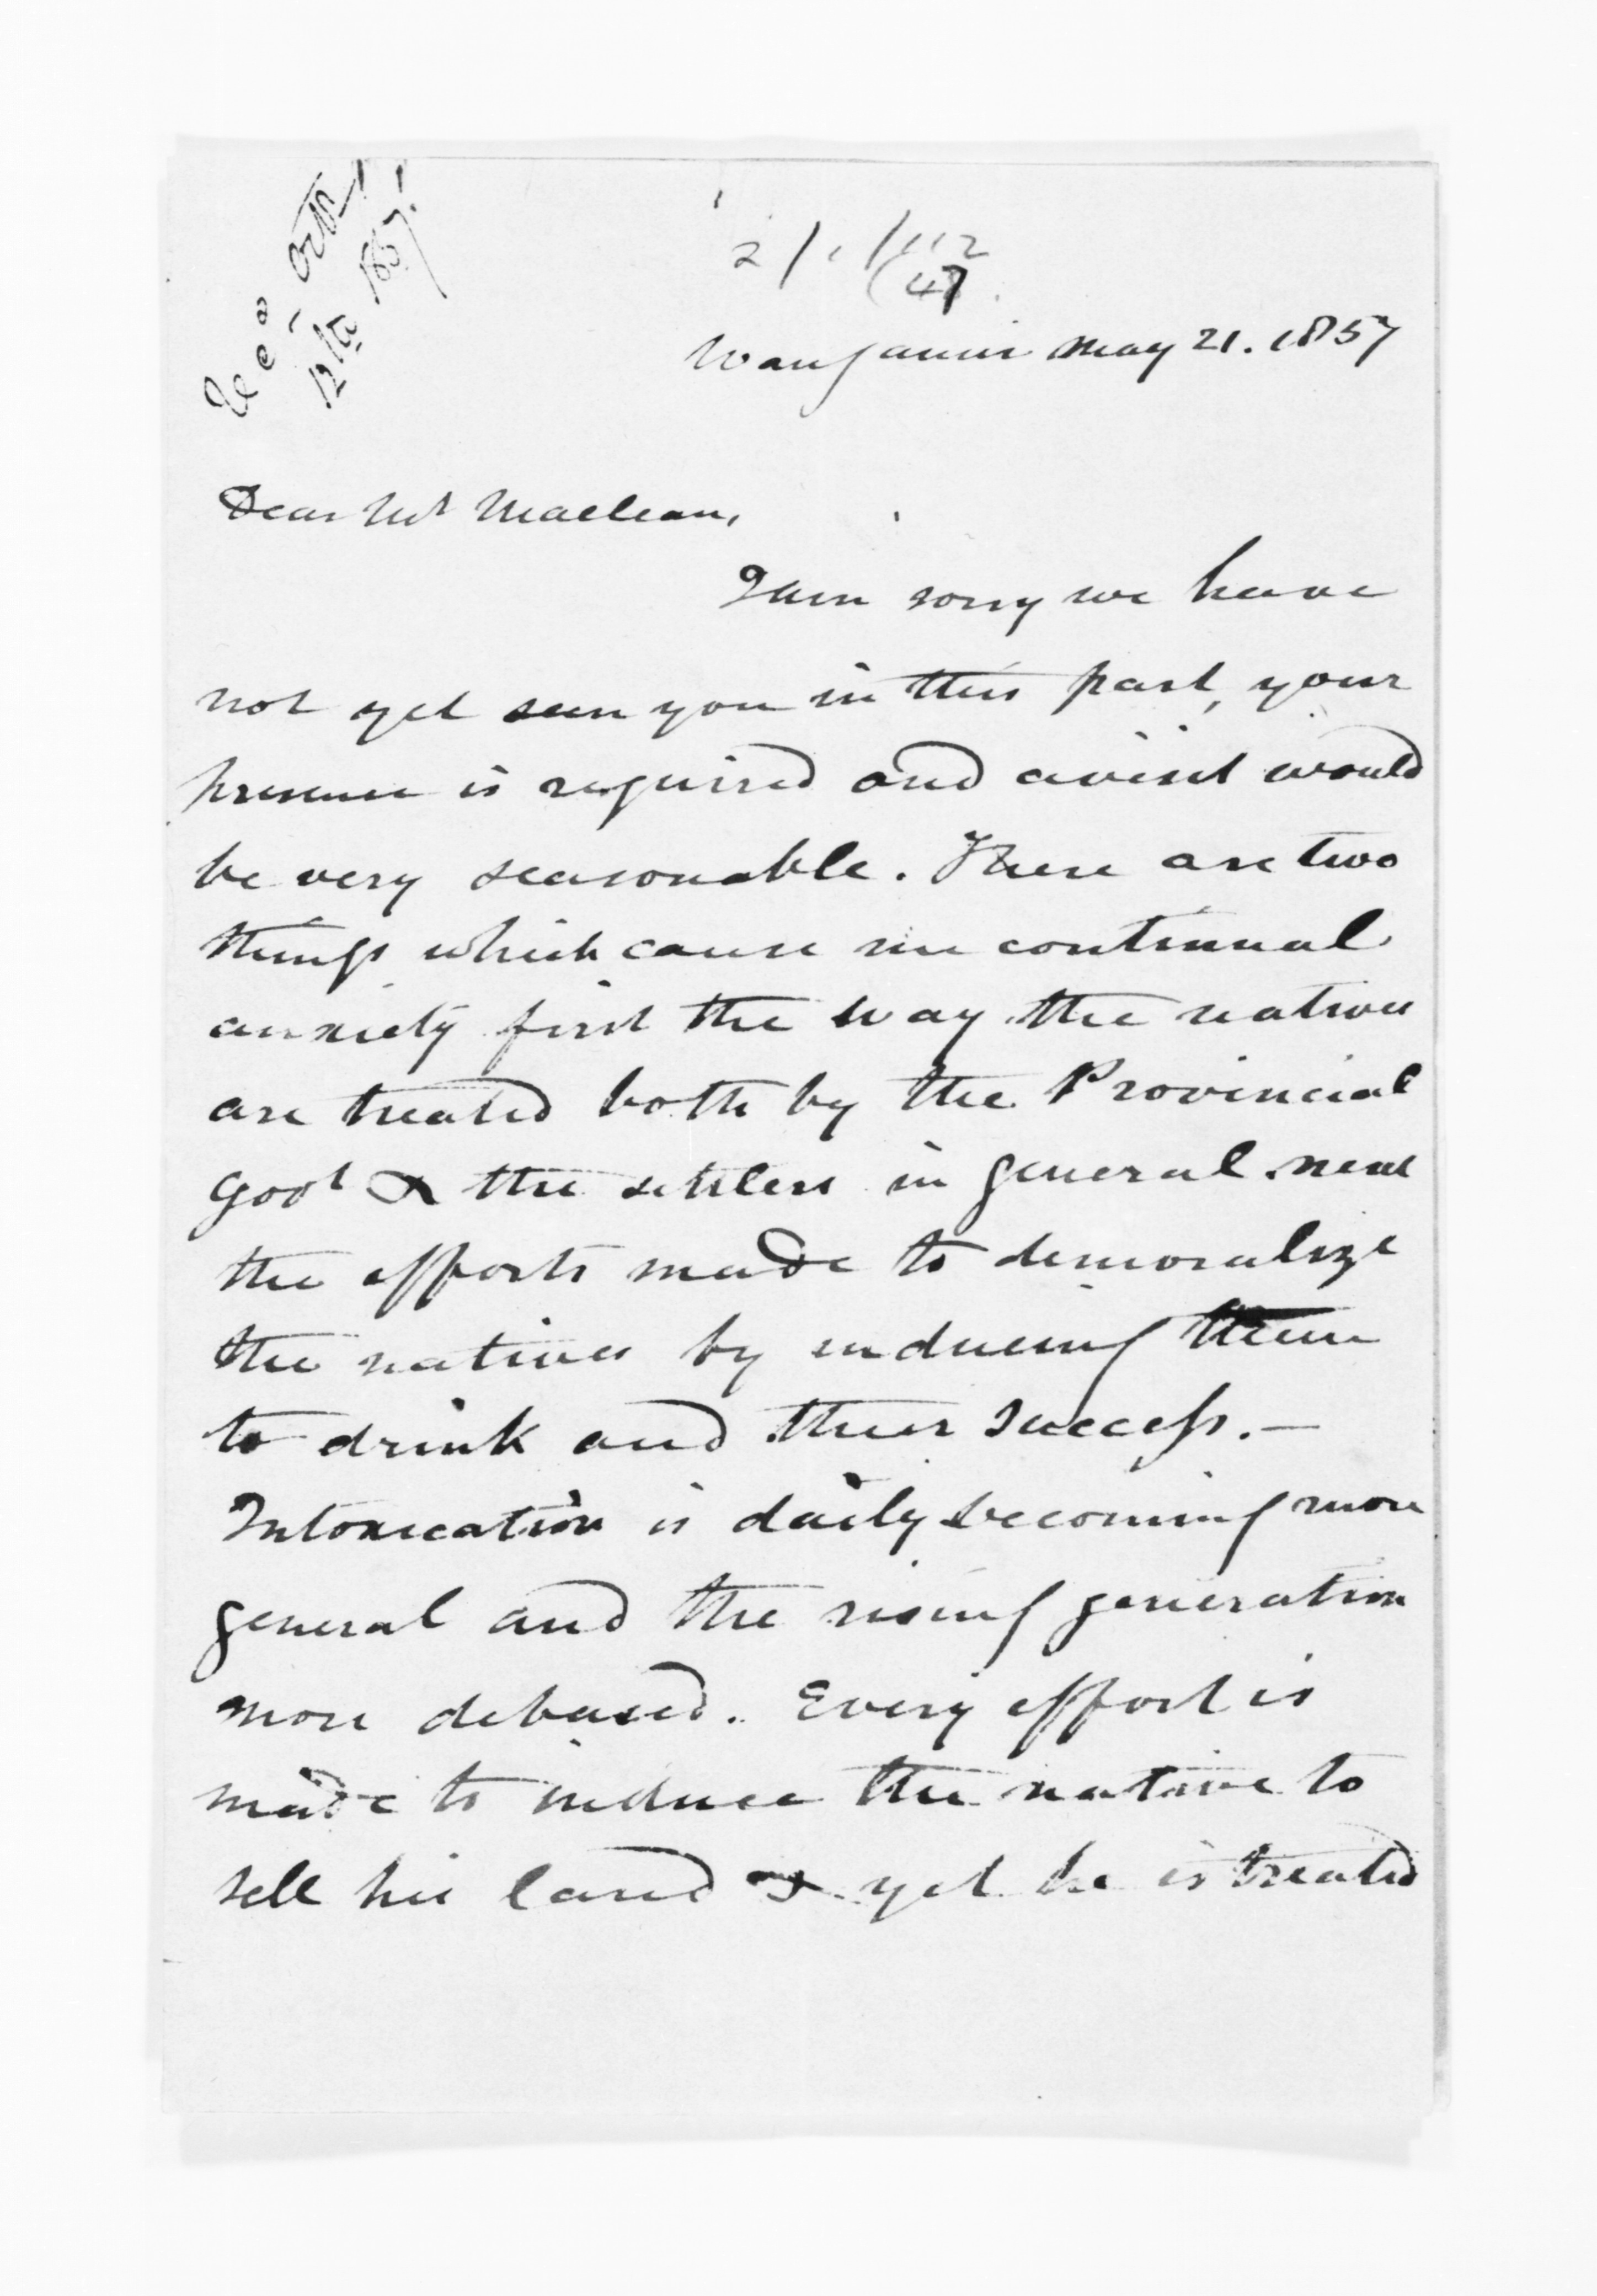 Oct
12th 1857.
Wanganui May 21. 1857
Dear Mr Maclean,
I am sorry we have
not yet seen you in this part, your
presence is required and a visit would
be very seasonable. There are two
things which cause me continual
anxiety first the way the natives
are treated both by the Provincial
Govt & the settlers in general. next
the efforts made to demoralize
the natives by inducing them
to drink and their success. —
Intoxication is daily becoming more
general and the rising generation
more debased. Every effort is
made to induce the native to
sell his land & yet he is treated